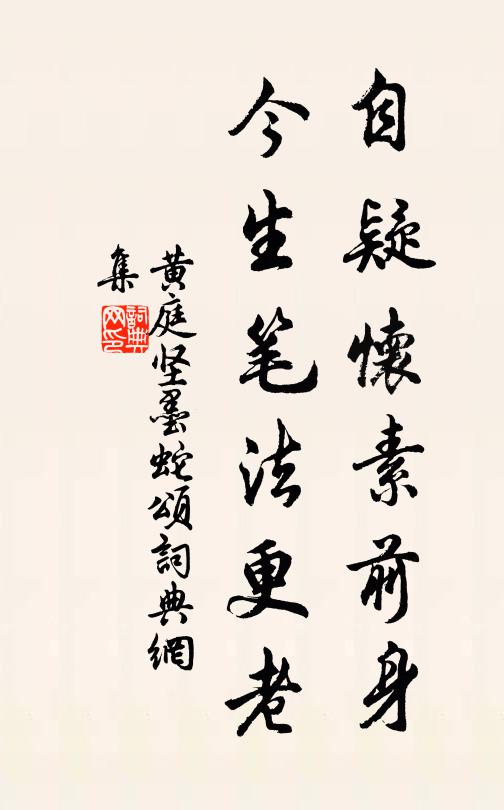 自疑懷素前身
今生笔法更老
黄庭坚墨蛇頌詞典網
集
詞典
网印